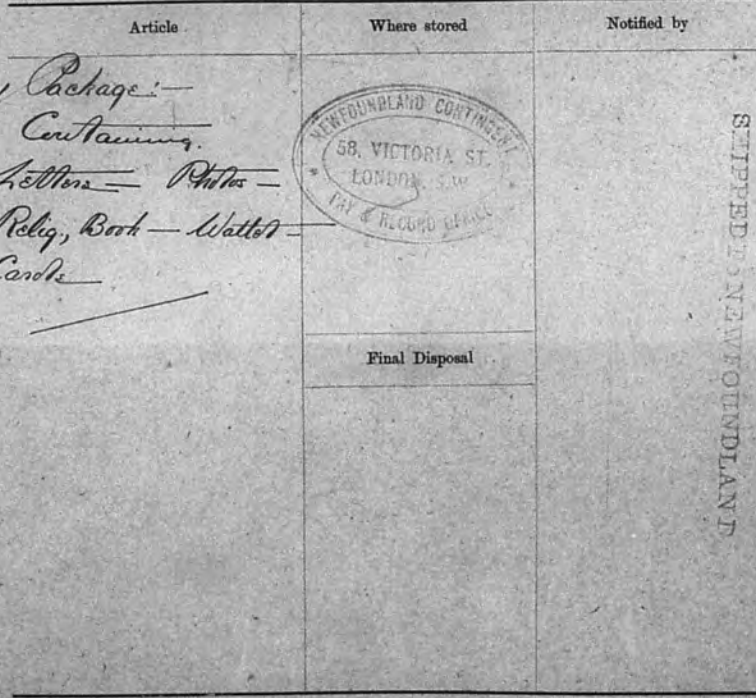 Article
Where stored
Notified by
Package:—
Containing.
Letters — Photos —
Relig, Book — Wallet —
Cards
NEWFOUNDLAND CONTINGENT
58, VICTORIA ST.
LONDON, S.W.
PAY & RECORD OFFICE
Final Disposal
SHIPPED NEWFOUNDLAND